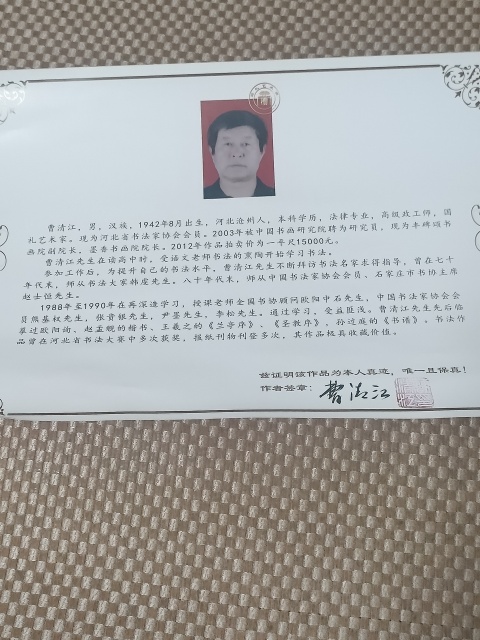 曹清江，男，汉族，1942年8月出生，河北沧州人，本科学历，法律专业，高级政工师，国
礼艺术家。现为河北省书法家协会会员。2003年被中国书画研究院聘为研究员，现为丰碑颂书
画院副院长，墨香书画院院长。2012年作品拍卖价为一平尺15000元。
曹清江先生在读高中时，受语文老师书法的熏陶开始学习书法。
参加工作后，为提升自己的书法水平，曹清江先生不断拜访书法名家求得指导，曾在七十
年代末，师从书法大家韩度先生。八十年代末，师从中国书法家协会会员、石家庄市书协主席
赵士恒先生。
1988年至1990年再深造学习，授课老师全国书协顾问欧阳中石先生，中国书法家协会会
员熊基权先生，张贵银先生，尹墨先生，李松先生。通过学习，受益匪浅。曹清江先生先后临
摹过欧阳询、赵孟頫的楷书、王羲之的《兰亭序》、《圣教序》，孙过庭的《书谱》。书法作
品曾在河北省书法大赛中多次获奖，报纸刊物刊登多次，其作品极具收藏价值。
兹证明该作品为本人真迹，唯一且保真！
作者签章：曹清江